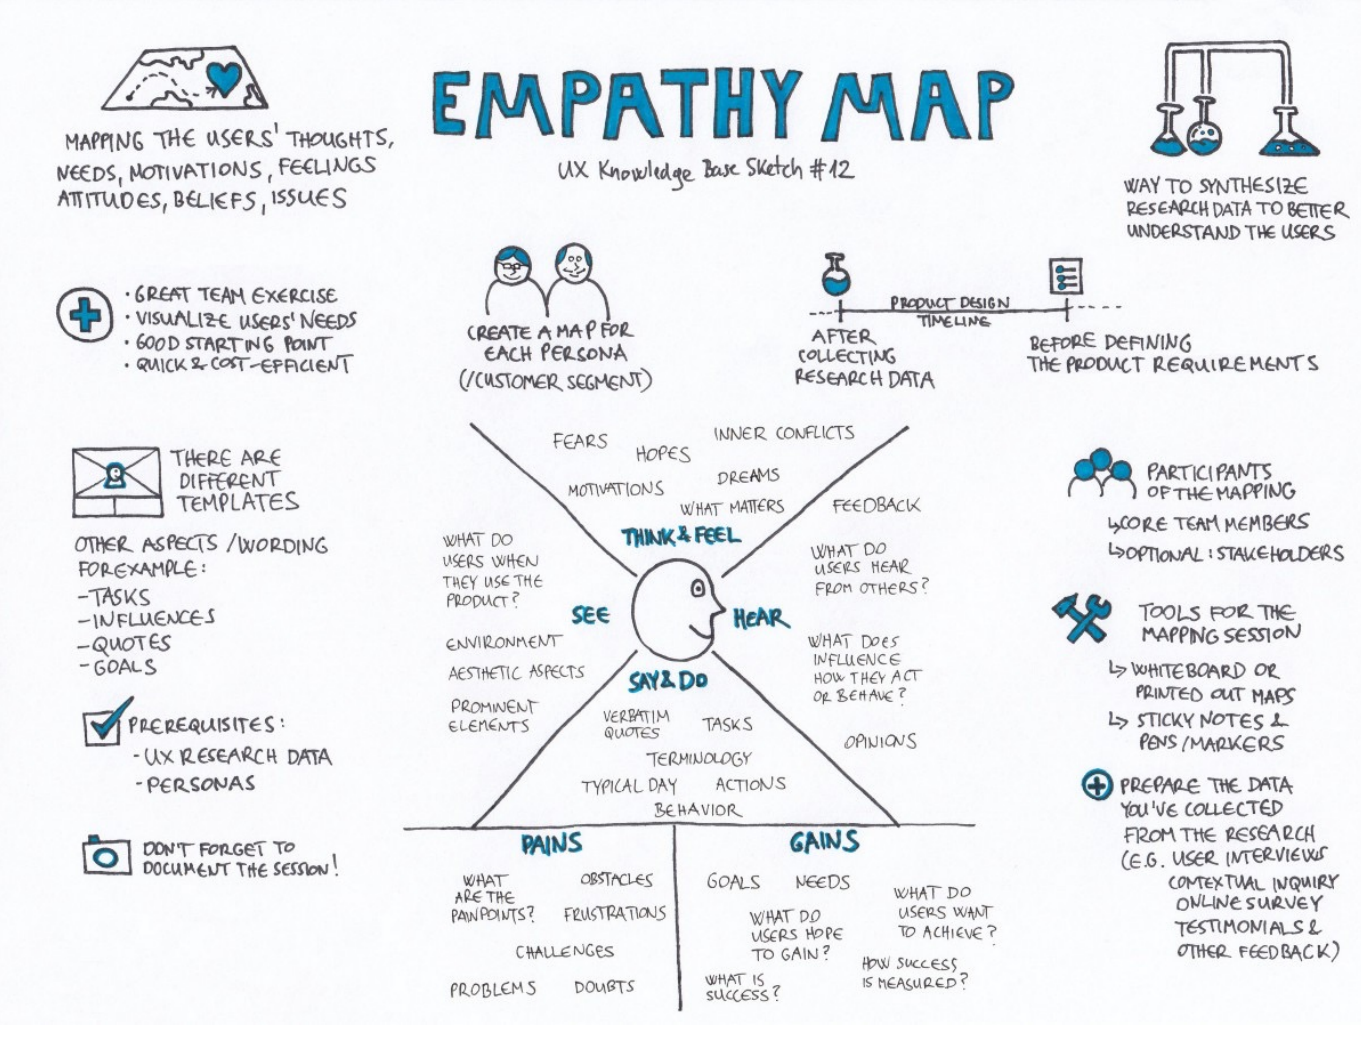 EMPATHY MAP
UX Knowledge Base Sketch #12
MAPPING THE USERS' THOUGHTS,
NEEDS, MOTIVATIONS, FEELINGS
ATTITUDES, BELIEFS, ISSUES
WAY TO SYNTHESIZE
RESEARCH DATA TO BETTER
UNDERSTAND THE USERS
· GREAT TEAM EXERCISE
· VISUALIZE USERS' NEEDS
· GOOD STARTING POINT
· QUICK & COST-EFFICIENT
CREATE A MAP FOR
EACH PERSONA
(/CUSTOMER SEGMENT)
PRODUCT DESIGN
TIMELINE
AFTER
COLLECTING
RESEARCH DATA
BEFORE DEFINING
THE PRODUCT REQUIREMENTS
THERE ARE
DIFFERENT
TEMPLATES
OTHER ASPECTS / WORDING
FOR EXAMPLE:
- TASKS
- INFLUENCES
- QUOTES
- GOALS
PREREQUISITES:
- UX RESEARCH DATA
- PERSONAS
DON'T FORGET TO
DOCUMENT THE SESSION!
FEARS
HOPES
INNER CONFLICTS
MOTIVATIONS
DREAMS
WHAT MATTERS
THINK & FEEL
WHAT DO
USERS WHEN
THEY USE THE
PRODUCT?
SEE
ENVIRONMENT
AESTHETIC ASPECTS
PROMINENT
ELEMENTS
FEEDBACK
WHAT DO
USERS HEAR
FROM OTHERS?
HEAR
WHAT DOES
INFLUENCE
HOW THEY ACT
OR BEHAVE?
OPINIONS
SAY & DO
VERBATIM
QUOTES
TASKS
TERMINOLOGY
TYPICAL DAY
ACTIONS
BEHAVIOR
PAINS
WHAT
ARE THE
PAINPOINTS?
OBSTACLES
FRUSTRATIONS
CHALLENGES
PROBLEMS
DOUBTS
GAINS
GOALS
NEEDS
WHAT DO
USERS WANT
TO ACHIEVE?
WHAT DO
USERS HOPE
TO GAIN?
WHAT IS
SUCCESS?
HOW SUCCESS
IS MEASURED?
PARTICIPANTS
OF THE MAPPING
↳ CORE TEAM MEMBERS
↳ OPTIONAL: STAKEHOLDERS
TOOLS FOR THE
MAPPING SESSION
↳ WHITEBOARD OR
PRINTED OUT MAPS
↳ STICKY NOTES &
PENS/MARKERS
PREPARE THE DATA
YOU'VE COLLECTED
FROM THE RESEARCH
(E.G. USER INTERVIEWS
CONTEXTUAL INQUIRY
ONLINE SURVEY
TESTIMONIALS &
OTHER FEEDBACK)